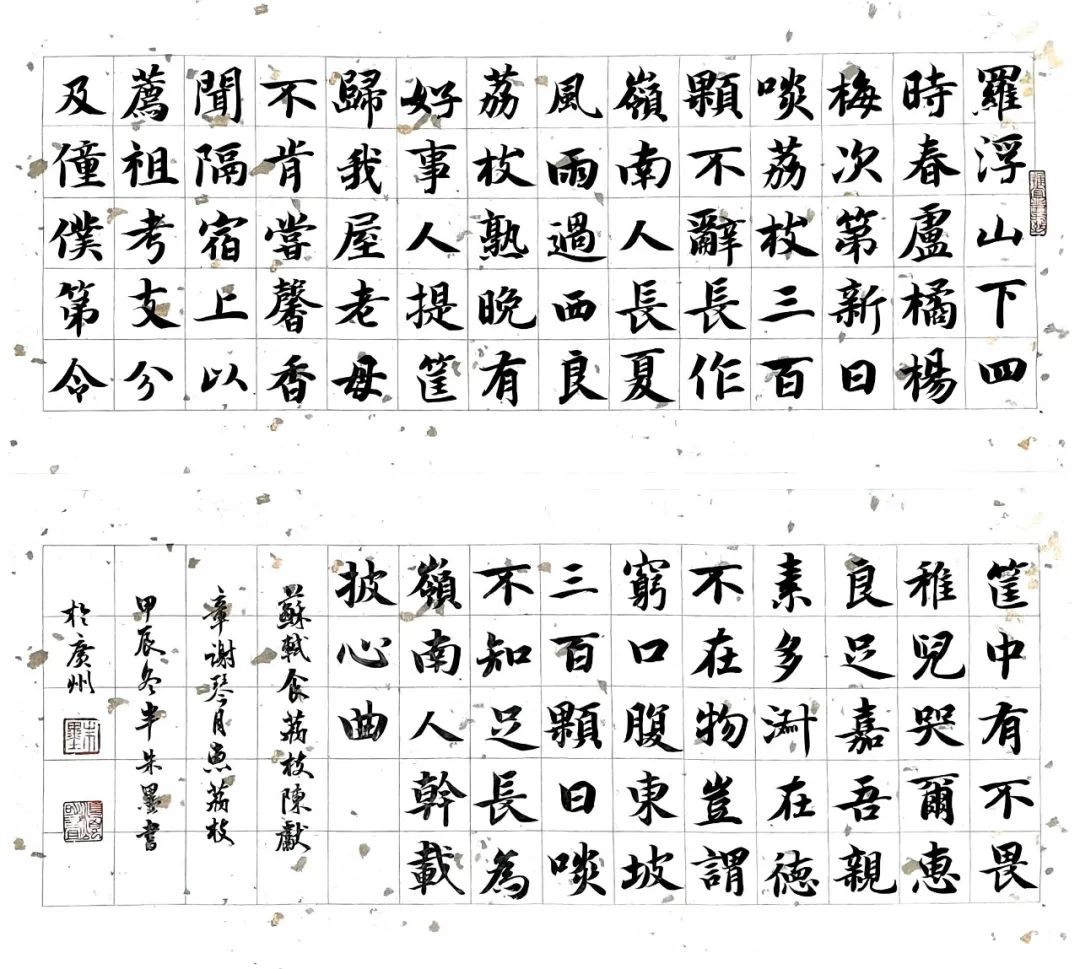 羅浮山下四
時春盧橘楊
梅次第新日
啖荔枝三百
顆不辭長作
嶺南人長夏
風雨過西良
荔枝熟晚有
好事人提筐
歸我屋老母
不肯嘗馨香
聞隔宿上以
薦祖考支分
及僮僕第令
筐中有不畏
稚兒哭爾惠
良足嘉吾親
素多在德
不在物豈謂
窮口腹東坡
三百顆日啖
不知足長為
嶺南人幹載
披心曲
蘇軾食荔枝陳獻
章謝琴月惠荔枝
甲辰冬半朱墨書
於廣州
朱墨